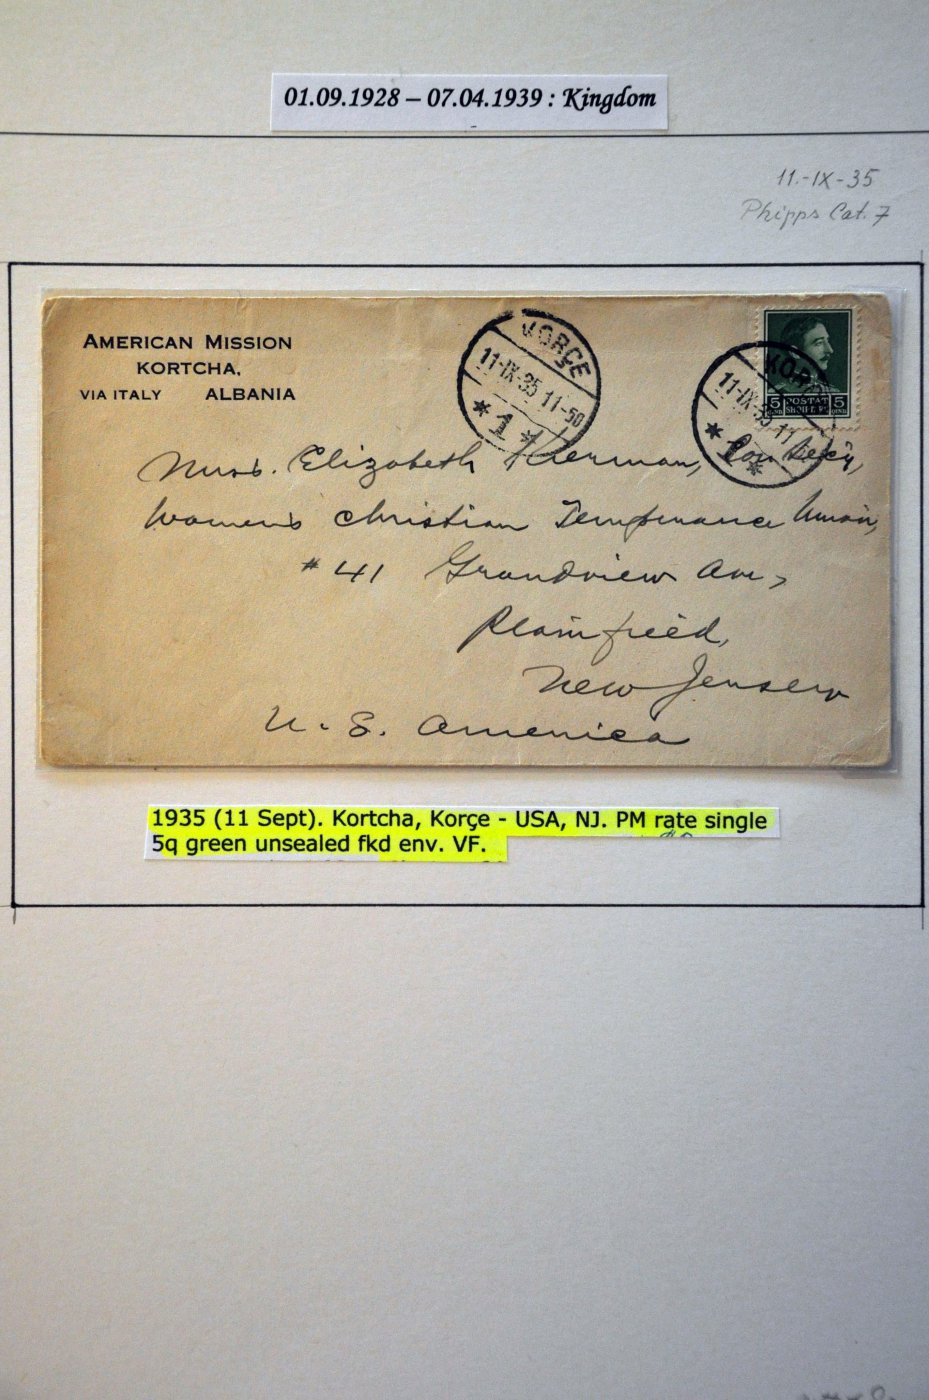 01.09.1928 – 07.04.1939 : Kingdom
11.-IX-35
Phipps Cat. 7
AMERICAN MISSION
KORTCHA,
VIA ITALY ALBANIA
KORÇE
11-IX-35 11-50
* 1 *
KORÇ
11-IX-35 11
* 1 *
5 POSTAT 5
SHQIPTARE
Elizabeth
Women's Christian Temperance Union,
#41 Grandview Ave,
Plainfield,
New Jersey
U. S. America
1935 (11 Sept). Kortcha, Korçe - USA, NJ. PM rate single
5q green unsealed fkd env. VF.